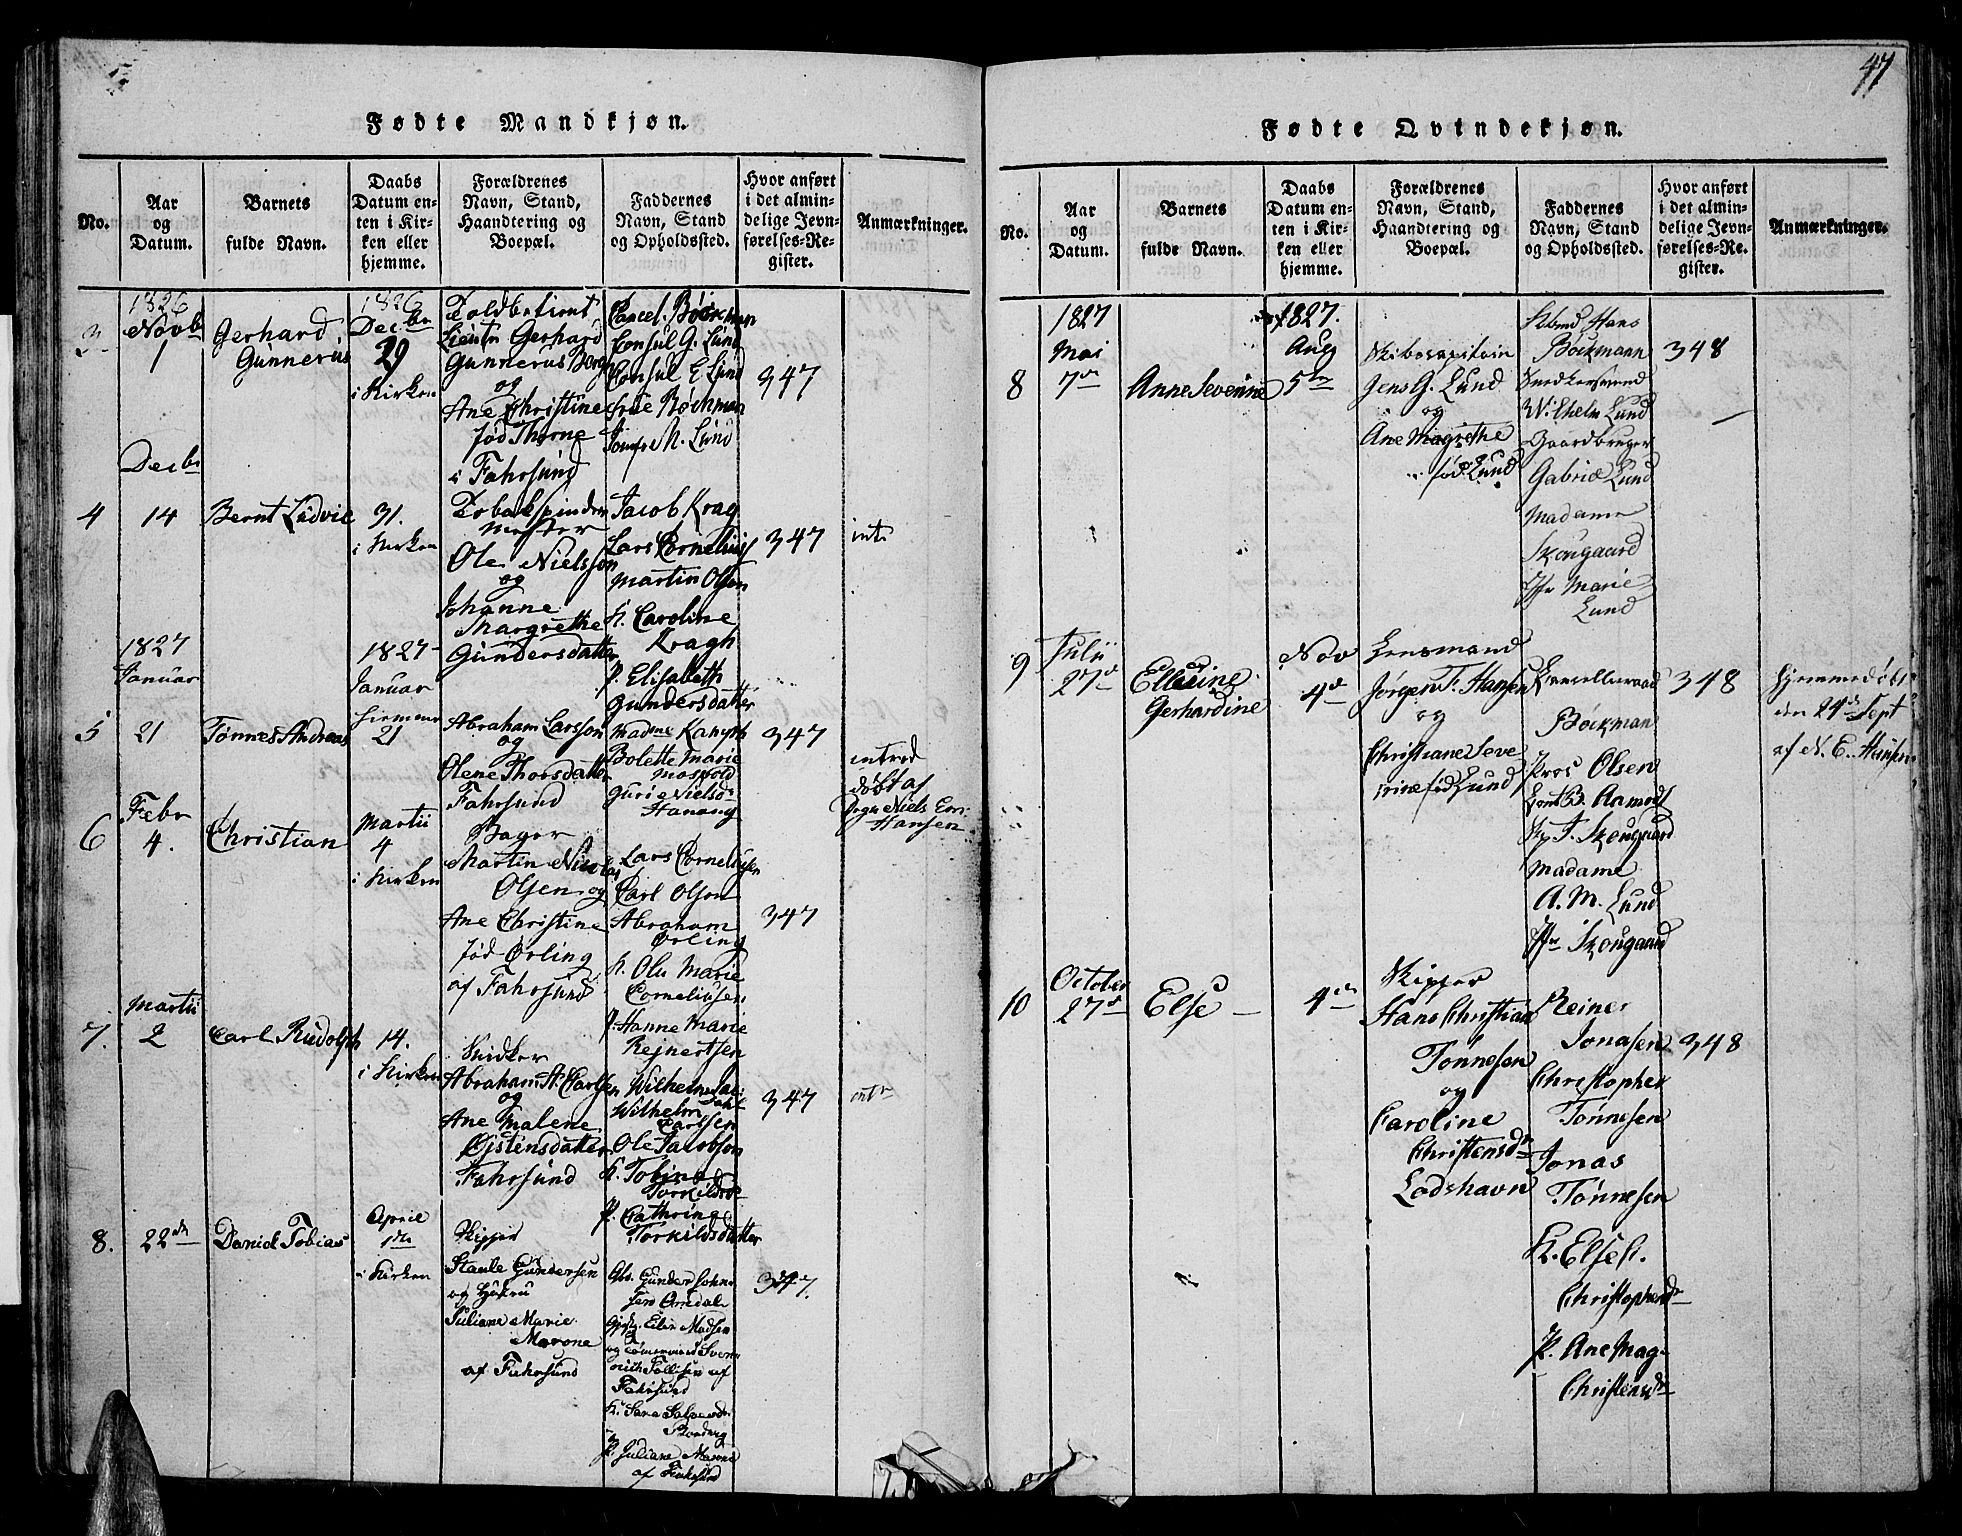 Fødte Mandkjøn.
No.
Aar
og
Datum.
Barnets
fulde Navn.
Daabs
Datum en-
ten i Kir-
ken eller
hjemme.
Forældrenes
Navn, Stand,
Haandtering og
Boepæl.
Faddernes
Navn, Stand
og Opholdssted.
Hvor anført
i det almin-
delige Jevn-
førelses-Re-
gister.
Anmærkninger.
3
1826
Novb
1
Gerhard
Gunnerus
1826
Decbr
29
i Kirken
Toldbetient
Lieutn Gerhard
Gunnerus
og
Ane Christine
fød Thorne
i Fahrsund
Cancel. Böckman
Consul G. Lund
Consul E. Lund
Frue Böckman
Jomfr N. Lund
347
Decbr
4
14
Bernt Ludvic
31.
i Kirken
Tobakspinder
mester
Ole Nielsson
og
Johanne
Margrethe
Gundersdatter
Jacob Krag
Lars Cornelius
Martin Olsen
K. Caroline
Kragh
P. Elisabeth
Gundersdatter
347
1827
Januar
5
21
Tønnes Andreas
1827
Januar
hiemme
21
Abraham Larsson
og
Olene Thorsdatter
Fahrsund
Madme
Bolette Marie
Mosvold
Guri Nielsd
347
døbt af
Niels
Hansen
Febr
6
4.
Christian
Martii
4
i Kirken
Bager
Martin Nicolai
Olsen og
Ane Christine
fød Ørling
af Fahrsund
Lars Corneliusen
Carl Olsen
Abraham
Ørling
K. Olu Marie
Corneliusen
P. Hanne Marie
Rejnertsen
347
Martii
7.
2
Carl Rudolph
14.
i Kirken
Snidker
Abraham A. Carlsen
og
Ane Malene
Øjstensdatter
Fahrsund
Wilhelm
Wilhelm
Carlssen
Ole Jacobson
K. Tobine
Torkilds
P. Cathrine
Torkildsdatter
347
8.
22de
Daniel Tobias
April
1ste
i Kirken
Skipper
Staale Gundersen
og Hustru
Juliane Marie
Marone
af Fahrsund
Gunder John-
sen
Madsen
og Svenn
Tollisen af
Fahrsund
K. Sara
P. Juliane Marone
af Fahrsund
347.
47
Fødte Qvindekjøn.
No.
Aar
og
Datum.
Barnets
fulde Navn.
Daabs
Datum en-
ten i Kir-
ken eller
hjemme.
Forældrenes
Navn, Stand,
Haandtering og
Boepæl.
Faddernes
Navn, Stand
og Opholdssted.
Hvor anført
i det almin-
delige Jevn-
førelses-Re-
gister.
Anmærkninger.
8
1827
Mai
7de
Anne Severine
1827.
Aug
5te
Skibscapitain
Jens G. Lund
og
Ane Magrethe
fød Lund
Hans
Böckmann
Wilhelm Lund
Gaardbruger
Gabriel Lund
Madame
Skougaard
Jfr Marie
Lund
348
9
Julii
27d
Ellevine
Gerhardine
Nov
4d
Lensmand
Jørgen F. Hansen
og
Christiane Seve
rine fød Lund
Cancelleraad
Böckman
Pros Olsen
B. Aamodt
F. Skougaard
Madame
A. M. Lund
Jfr Skougaard
348
hjemmedøbt
den 24de Sept
af N. E. Hansen
10
October
27d
Else
4de
Skipper
Hans Christian
Tønnesen
og
Caroline
Christensdr
Lodshavn
Reiner
Jonasen
Christopher
Tønnesen
Jonas
Tønnesen
K. Else
Christophersdr
P. Ane Mag-
Christensdr
348